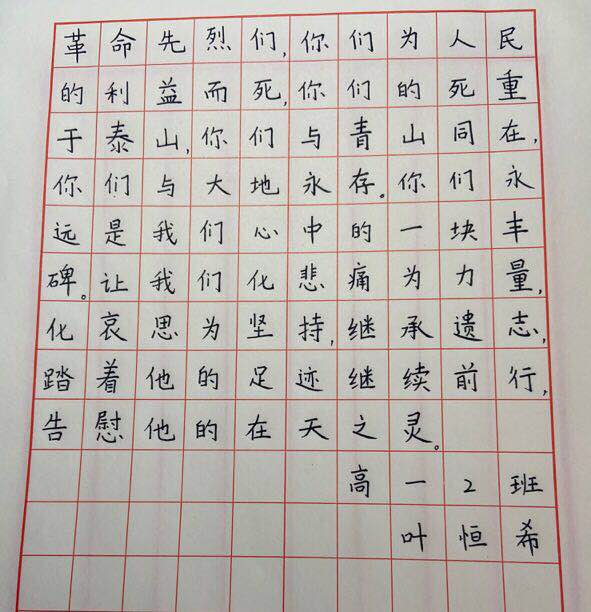 革命先烈们,你们为人民
的利益而死,你们的死重
于泰山,你们与青山同在,
你们与大地永存。你们永
远是我们心中的一块丰
碑。让我们化悲痛为力量,
化哀思为坚持,继承遗志,
踏着他的足迹继续前行,
告慰他的在天之灵。
高一2班
叶恒希